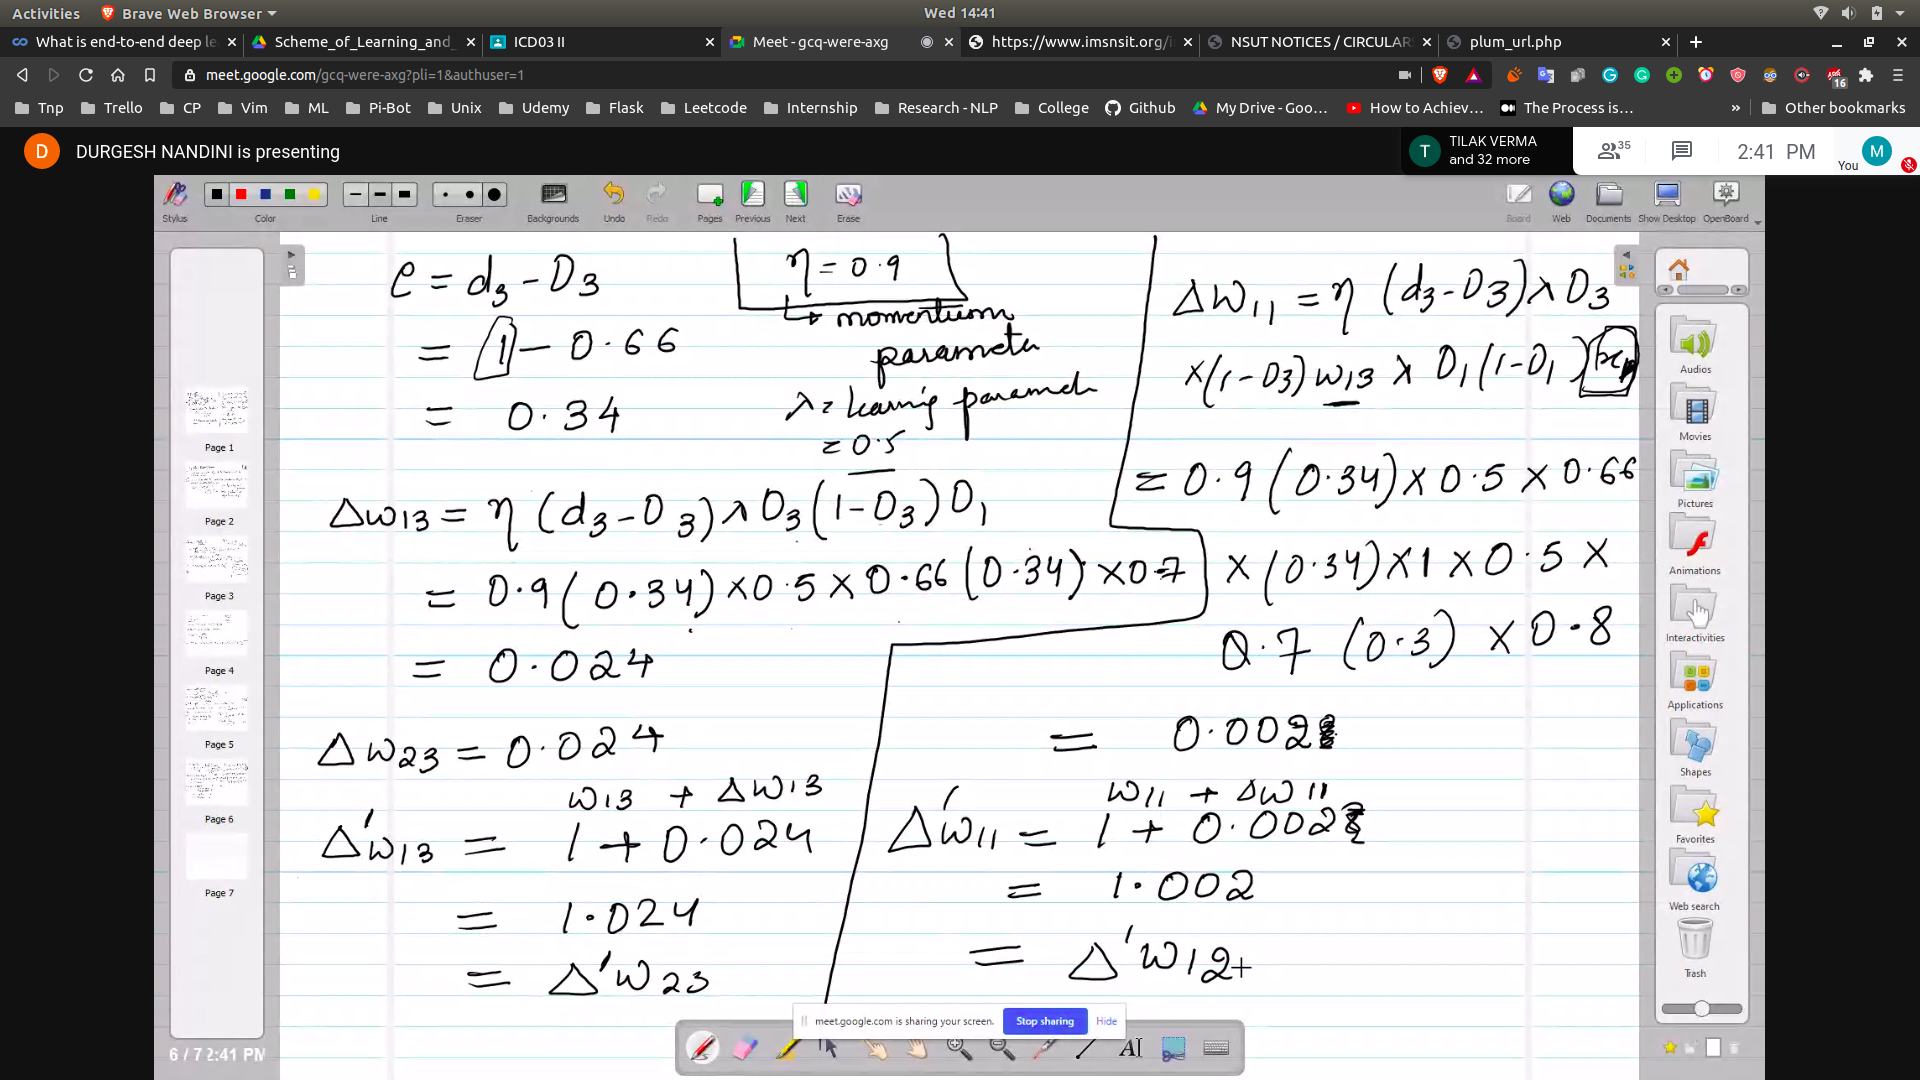 Activities
Brave Web Browser
Wed 14:41
What is end-to-end deep le
Scheme_of_Learning_and_
ICD03 II
Meet - gcq-were-axg
https://www.imsnsit.org/i
NSUT NOTICES / CIRCULAR
plum_url.php
meet.google.com/gcq-were-axg?pli=1&authuser=1
16
Tnp
Trello
CP
Vim
ML
Pi-Bot
Unix
Udemy
Flask
Leetcode
Internship
Research - NLP
College
Github
My Drive - Goo...
How to Achiev...
The Process is...
»
Other bookmarks
D
DURGESH NANDINI is presenting
T
TILAK VERMA
and 32 more
35
2:41 PM
You
M
Stylus
Color
Line
Eraser
Backgrounds
Undo
Redo
Pages
Previous
Next
Erase
Board
Web
Documents
Show Desktop
OpenBoard
Page 1
Page 2
Page 3
Page 4
Page 5
Page 6
Page 7
6 / 7
2:41 PM
e = d3 - O3
= 1 - 0.66
= 0.34
η = 0.9
↳ momentum
parameter
λ = learning parameter
= 0.5
ΔW13 = η (d3 - O3) λ O3 (1 - O3) O1
= 0.9 (0.34) × 0.5 × 0.66 (0.34) × 0.7
= 0.024
ΔW23 = 0.024
W13 + ΔW13
Δ'W13 = 1 + 0.024
= 1.024
= Δ'W23
ΔW11 = η (d3 - O3) λ O3
× (1 - O3) W13 λ O1 (1 - O1)
= 0.9 (0.34) × 0.5 × 0.66
× (0.34) × 1 × 0.5 ×
0.7 (0.3) × 0.8
= 0.002
W11 + ΔW11
Δ'W11 = 1 + 0.002
= 1.002
= Δ'W12
Audios
Movies
Pictures
Animations
Interactivities
Applications
Shapes
Favorites
Web search
Trash
meet.google.com is sharing your screen.
Stop sharing
Hide